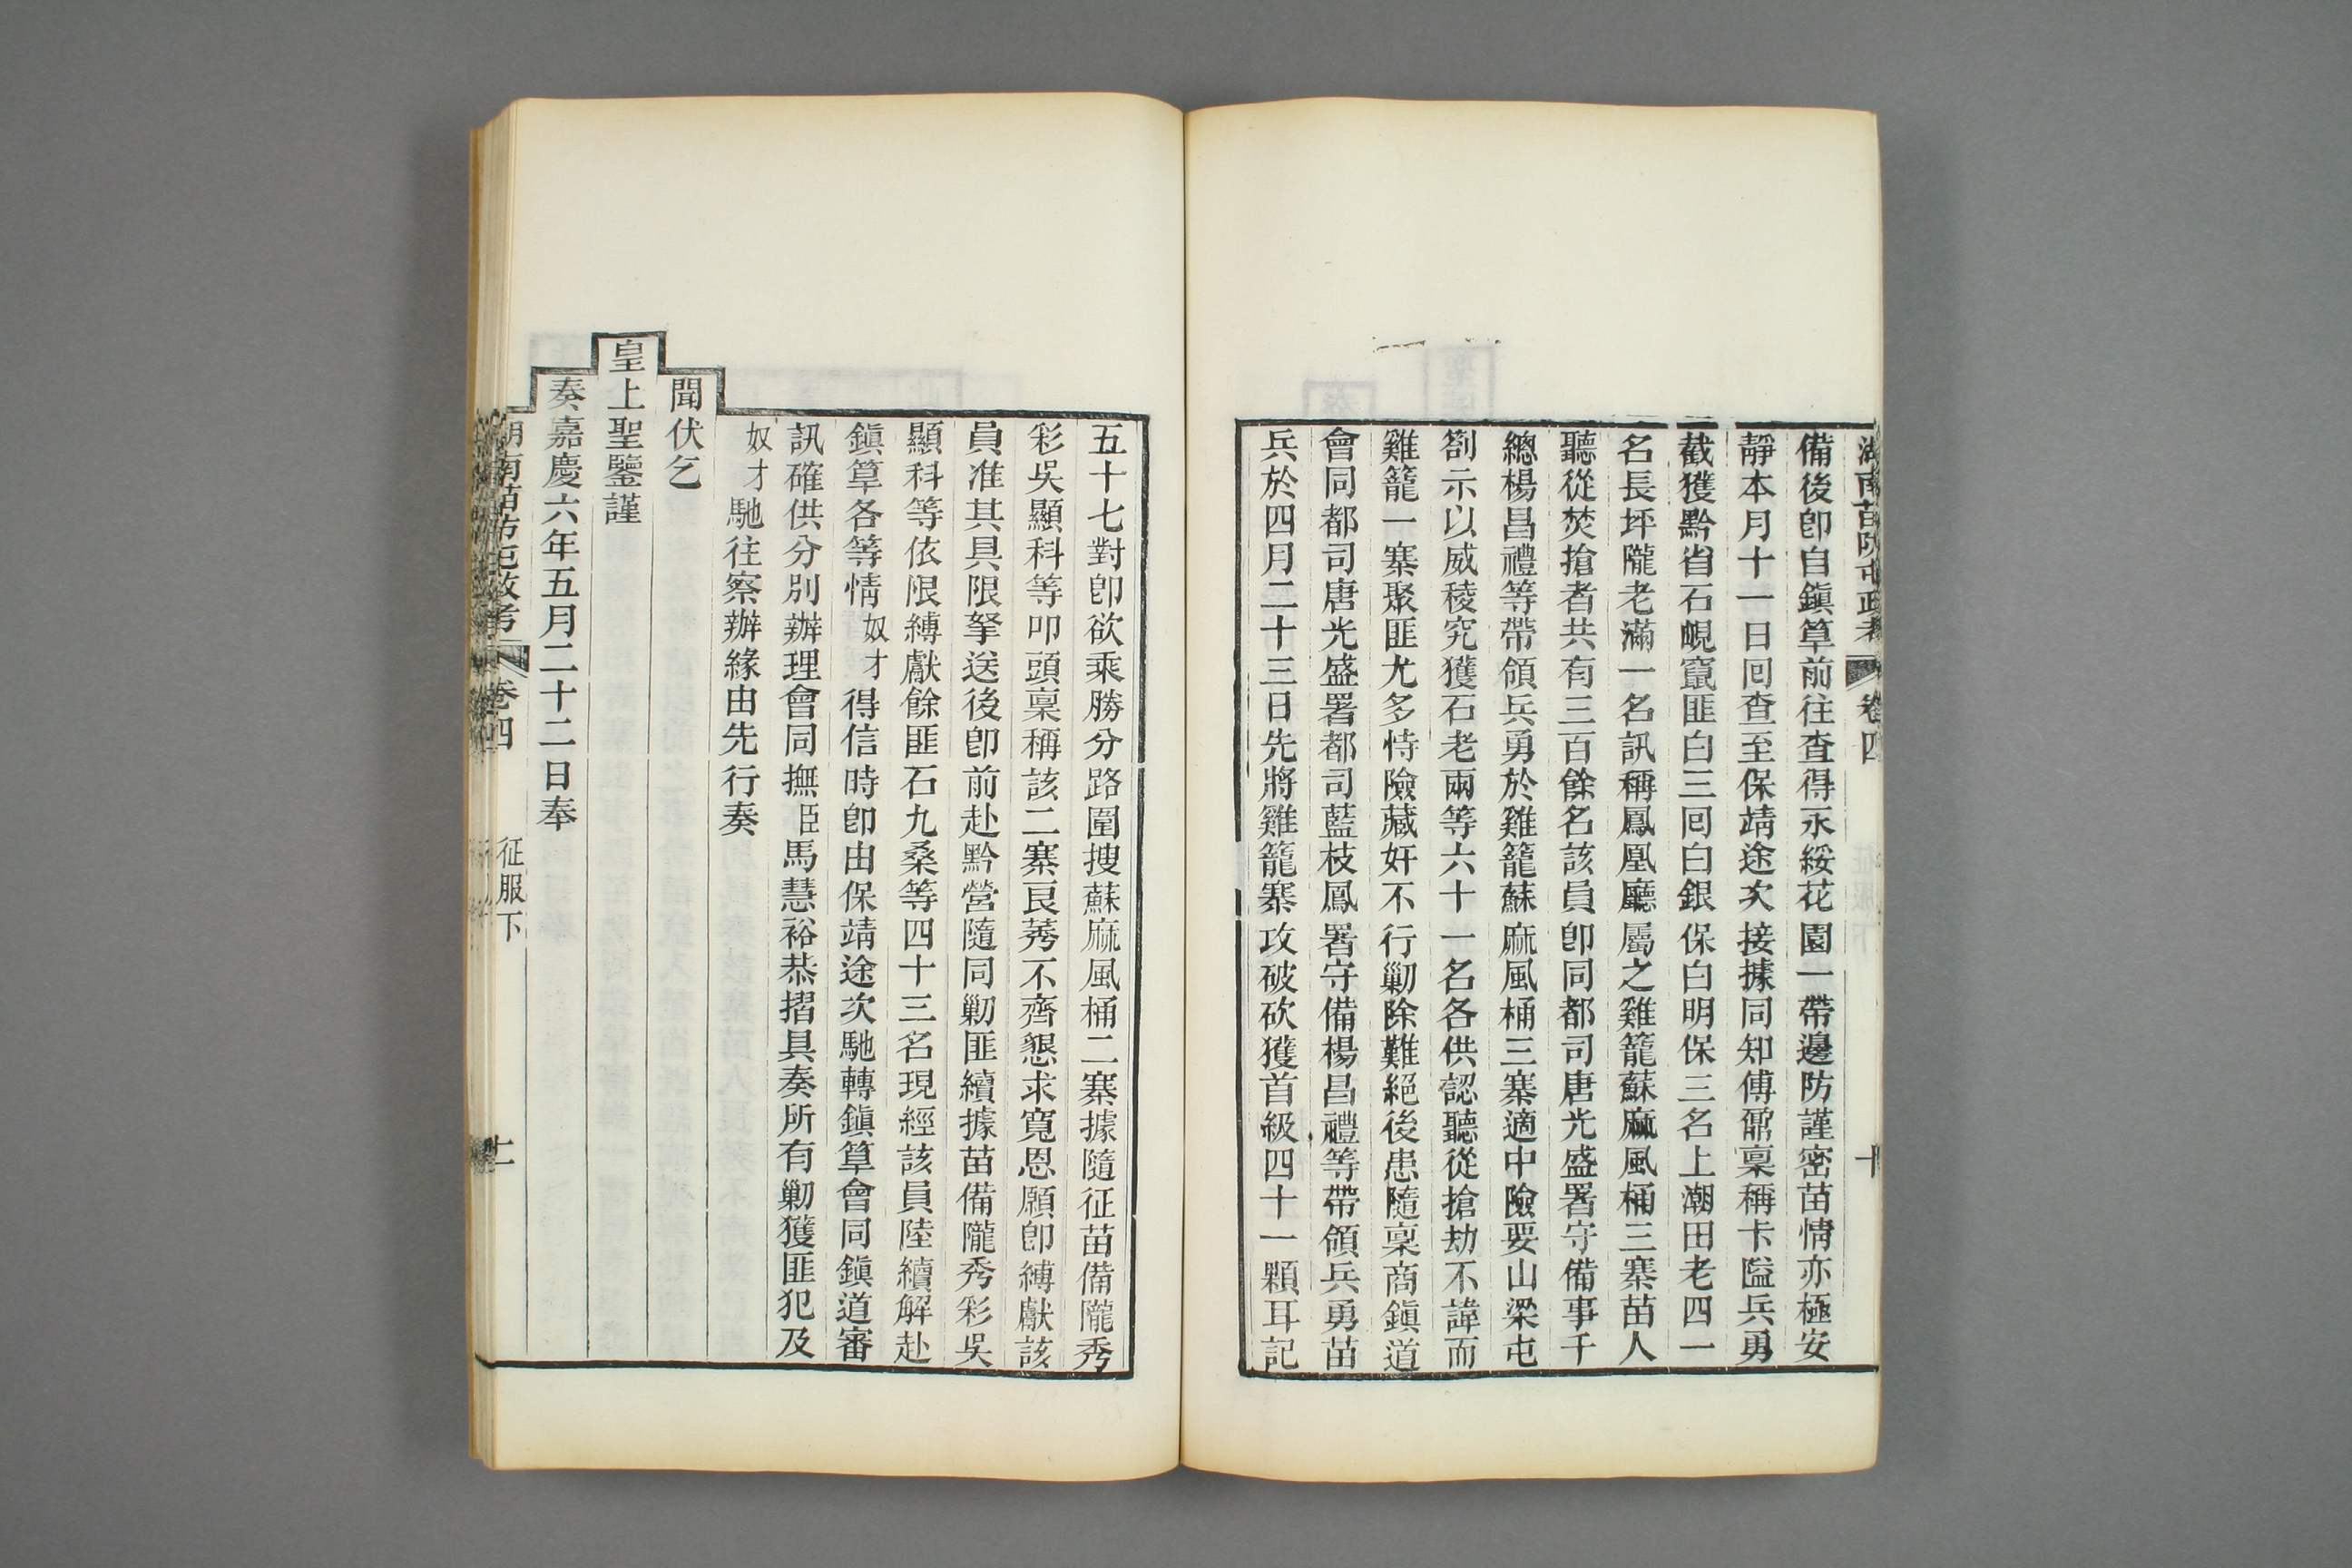 湖南苗防屯政考 卷四 十
備後卽自鎭筸前往查得永綏花園一帶邊防謹密苗情亦極安
靜本月十一日囘查至保靖途次接據同知傅鼐稟稱卡隘兵勇
截獲黔省石峴竄匪白三囘白銀保白明保三名上潮田老四一
名長坪隴老滿一名訊稱鳳凰廳屬之雞籠蘇麻風桶三寨苗人
聽從焚搶者共有三百餘名該員卽同都司唐光盛署守備事千
總楊昌禮等帶領兵勇於雞籠蘇麻風桶三寨適中險要山梁屯
劄示以威稜究獲石老兩等六十一名各供認聽從搶劫不諱而
雞籠一寨聚匪尤多恃險藏奸不行勦除難絕後患隨稟商鎭道
會同都司唐光盛署都司藍枝鳳署守備楊昌禮等帶領兵勇苗
兵於四月二十三日先將雞籠寨攻破砍獲首級四十一顆耳記
五十七對卽欲乘勝分路圍搜蘇麻風桶二寨據隨征苗備隴秀
彩吳顯科等叩頭稟稱該二寨良莠不齊懇求寬恩願卽縛獻該
員准其具限拏送後卽前赴黔營隨同勦匪續據苗備隴秀彩吳
顯科等依限縛獻餘匪石九桑等四十三名現經該員陸續解赴
鎭筸各等情奴才得信時卽由保靖途次馳轉鎭筸會同鎭道審
訊確供分別辦理會同撫臣馬慧裕恭摺具奏所有勦獲匪犯及
奴才馳往察辦緣由先行奏
聞伏乞
皇上聖鑒謹
奏嘉慶六年五月二十二日奉
湖南苗防屯政考 卷四 征服下 十一